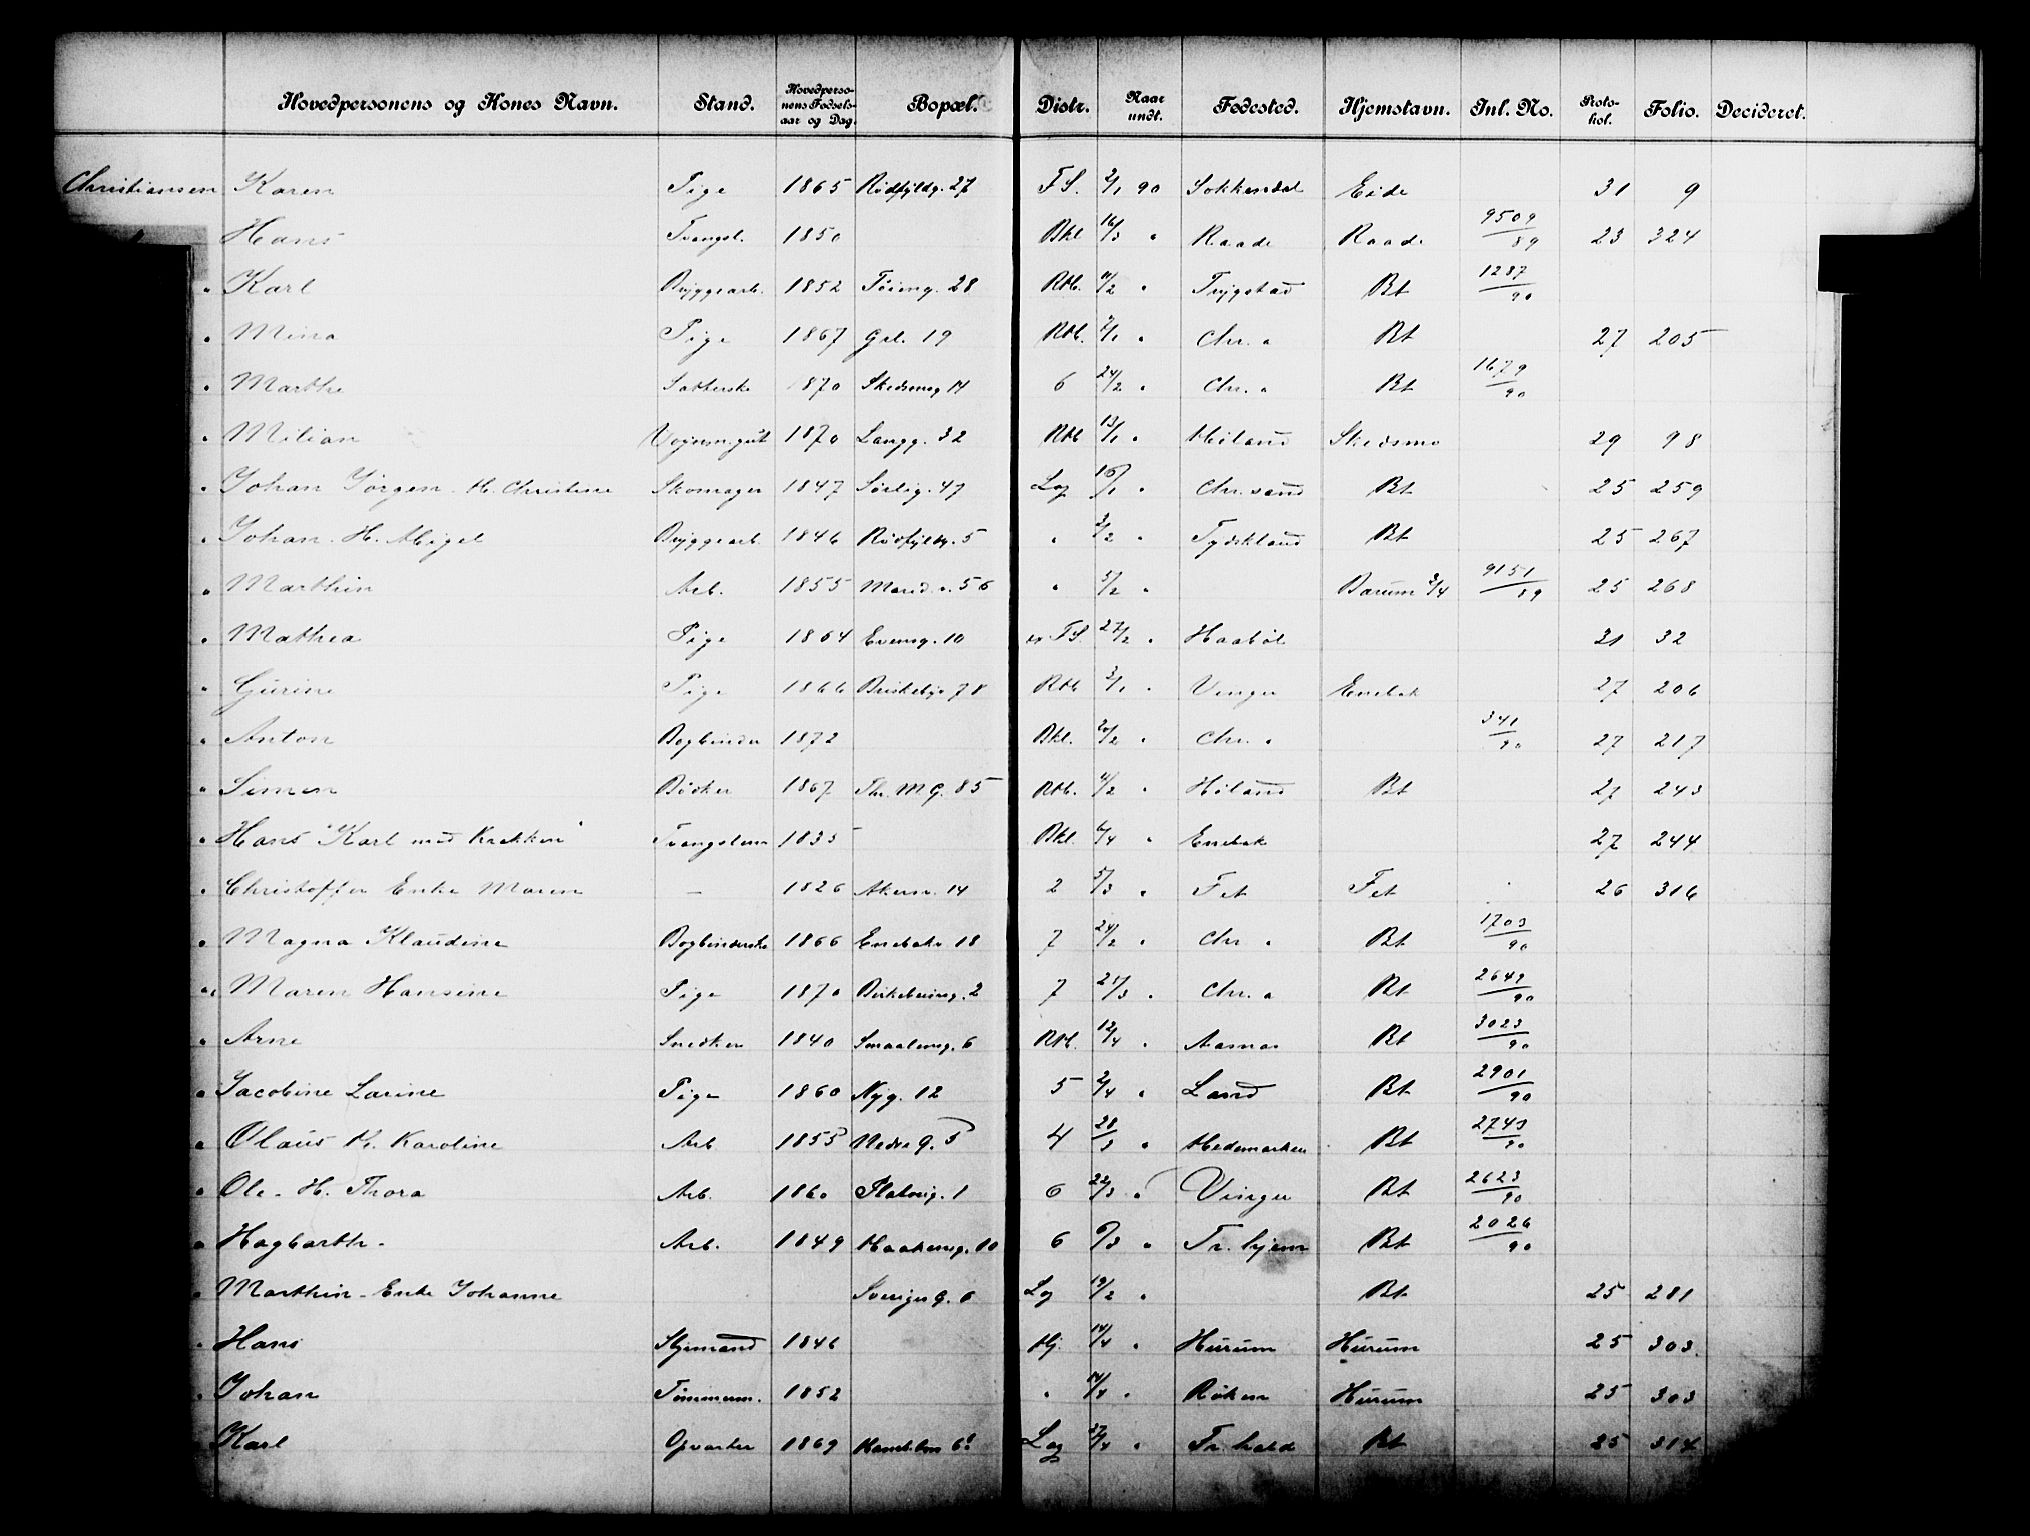 Hovedpersonens og Kones Navn. Stand. Hovedpersonens Fødselsaar og Dag. Bopæl. Distr. Naar undt. Fødested. Hjemstavn. Inl. No. Protokol. Folio. Decideret.
Christiansen Karen Pige 1865 Rødfyldg. 27 FS. 2/1 90 Sokkendal Eide 31 9
Hans Tvangsl. 1850 Bkl 16/3 " Raade Raade 9509/89 23 324
" Karl Bryggearb. 1852 Tøieng. 28 Rtb. 11/2 " Trygstad Bt 1287/90
" Mina Pige 1867 Grl. 19 Rtb. 7/1 " Chr. a Bt 27 205
" Marthe 1870 Skedsmog 14 6 24/2 " Chr. a Bt 1679/90
" Milian Vognm.gut 1870 Langg. 32 Rtb 13/1 " Høland Skedsmo 29 98
" Johan Jørgen H. Christine Skomager 1847 Sørlig. 47 Lag 15/1 " Chr.sand Bt 25 259
" Johan H. Bryggearb. 1846 Rødfyldg. 5 " 3/2 " Tydskland Bt 25 267
" Marthin Arb. 1855 Marid. v. 56 " 5/2 " Barum 3/4 9151/89 25 268
" Mathea Pige 1864 Evensg. 10 FS. 27/2 " Haabøl 31 32
" Gurine Pige 1866 Briskebyv 78 Rtb 3/1 " Vinger Enebak 27 206
" Anton Bogbinder 1872 Bkl. 20/2 " Chr. a 341/90 27 217
" Simen Bødker 1867 Thr. M G. 85 Rtb. 11/2 " Høland Bt 27 243
" Hans "Karl med Krakken" Tvangslem 1835 Bkl. 6/4 " Enebak 27 244
" Christoffer Enke Maren — 1826 Akersv. 14 2 5/3 " Fet Fet 26 316
" Magna Klaudine Bogbinderske 1866 Enebakv 18 7 24/2 " Chr a Bt 1703/90
" Maren Hansine Pige 1870 Birkebeing. 2 7 21/3 " Chr. a Bt 2649/90
" Arne Snedker 1840 Smaaleng. 6 Rtb. 12/4 " Aasnes Bt 3023/90
" Jacobine Larine Pige 1860 Nyg. 12 5 2/4 " Land Bt 2901/90
" Olaus H. Karoline Arb. 1855 Nedre G. 5 4 28/3 " Hedemarken Bt 2743/90
" Ole H. Thora Arb. 1860 Platoug. 1 6 22/3 " Vinger Bt 2623/90
" Hagbarth Arb. 1849 Haakensg. 10 6 6/3 " Tr. hjem Bt 2026/90
" Marthin Enke Johanne Sveriges g. 6 Lg 19/2 " Bt 25 281
" Hans Styrmand 1846 Hj. 14/4 " Hurum Hurum 25 303
" Johan Tømmerm. 1852 " 14/4 " Røken Hurum 25 303
Karl Opvarter 1869 Lag 27/4 " Fr. hald Bt 25 314